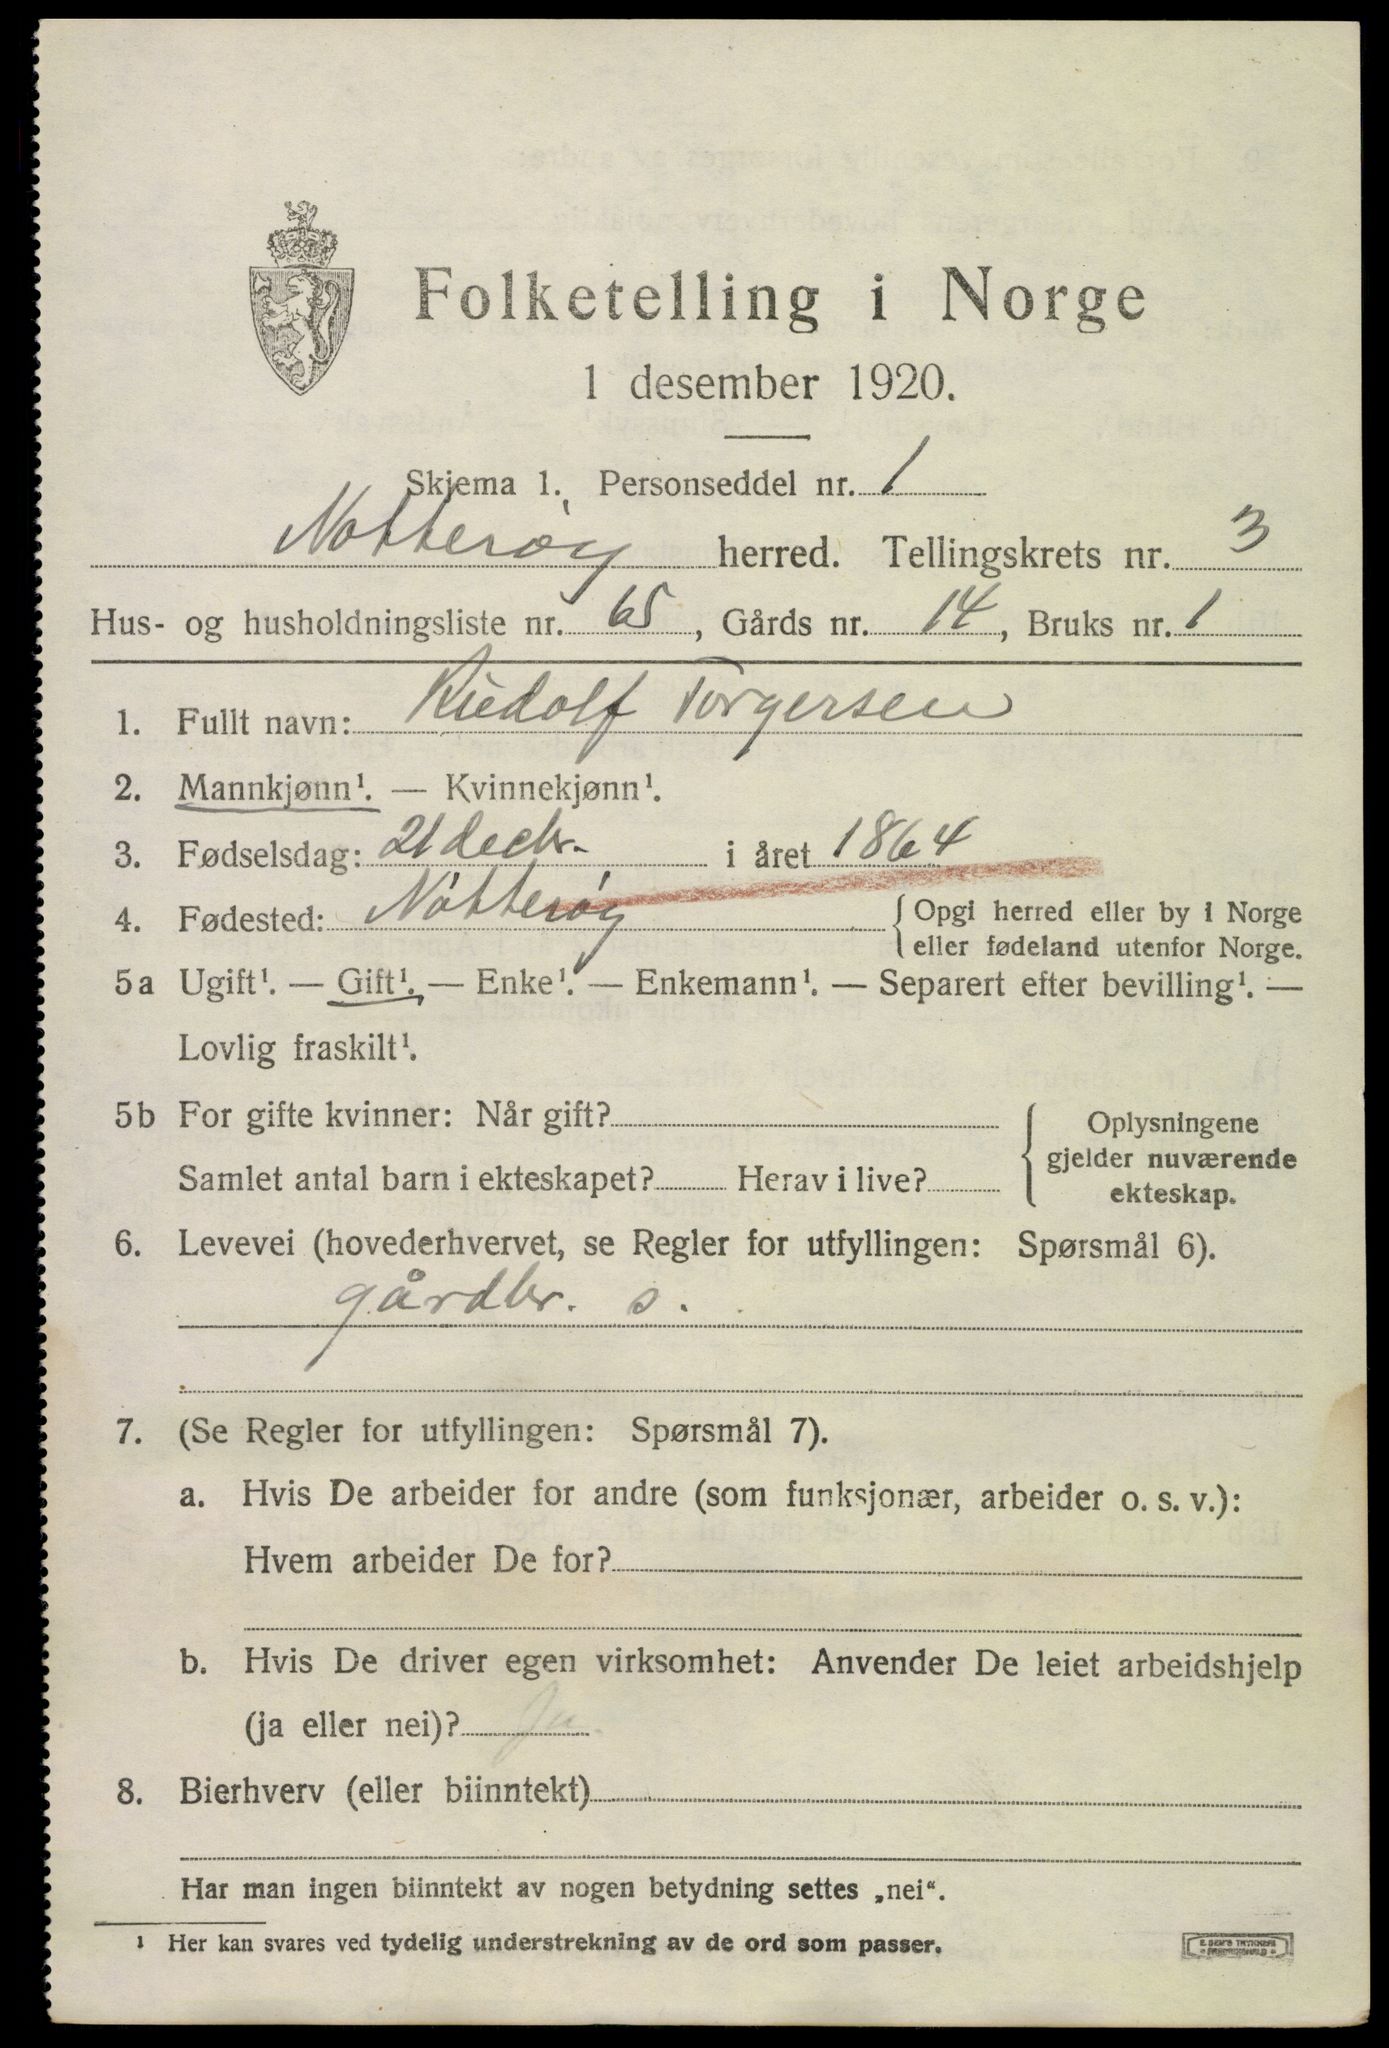 Folketelling i Norge
1 desember 1920.
Skjema 1. Personseddel nr. 1
Nøtterøy herred. Tellingskrets nr. 3
Hus- og husholdningsliste nr. 65, Gårds nr. 14, Bruks nr. 1
1. Fullt navn: Rudolf Torgersen
2. Mannkjønn¹. — Kvinnekjønn¹.
3. Fødselsdag: 21 decbr. i året 1864
4. Fødested: Nøtterøy { Opgi herred eller by i Norge
eller fødeland utenfor Norge.
5a Ugift¹. — Gift¹. — Enke¹. — Enkemann¹. — Separert efter bevilling¹. —
Lovlig fraskilt¹.
5b For gifte kvinner: Når gift?
Samlet antal barn i ekteskapet? Herav i live?
Oplysningene
gjelder nuværende
ekteskap.
6. Levevei (hovederhvervet, se Regler for utfyllingen: Spørsmål 6).
gårdbr. s.
7. (Se Regler for utfyllingen: Spørsmål 7).
a. Hvis De arbeider for andre (som funksjonær, arbeider o. s. v.):
Hvem arbeider De for?
b. Hvis De driver egen virksomhet: Anvender De leiet arbeidshjelp
(ja eller nei)? Ja
8. Bierhverv (eller biinntekt)
Har man ingen biinntekt av nogen betydning settes „nei“.
¹ Her kan svares ved tydelig understrekning av de ord som passer.